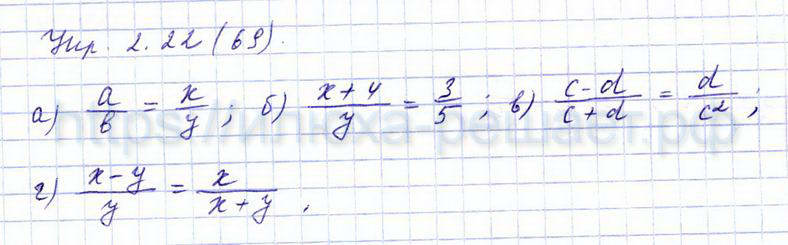 Упр. 2.22 (69).
а) a/b = x/y; б) (x+4)/y = 3/5; в) (c-d)/(c+d) = d/c²;
г) (x-y)/y = x/(x+y).
https://илюха-решает.рф